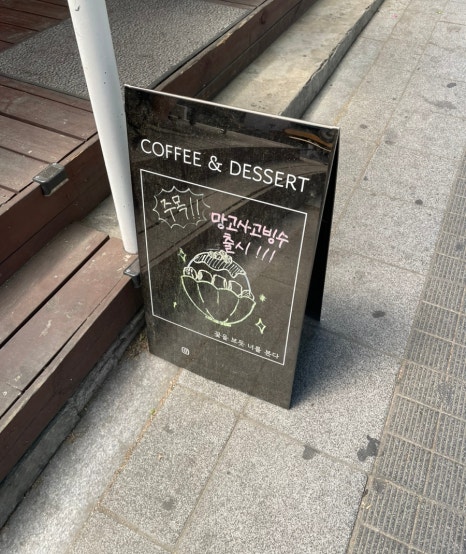 COFFEE & DESSERT
주목!!
망고사고빙수
출시!!!
꽃을 보듯 너를 본다